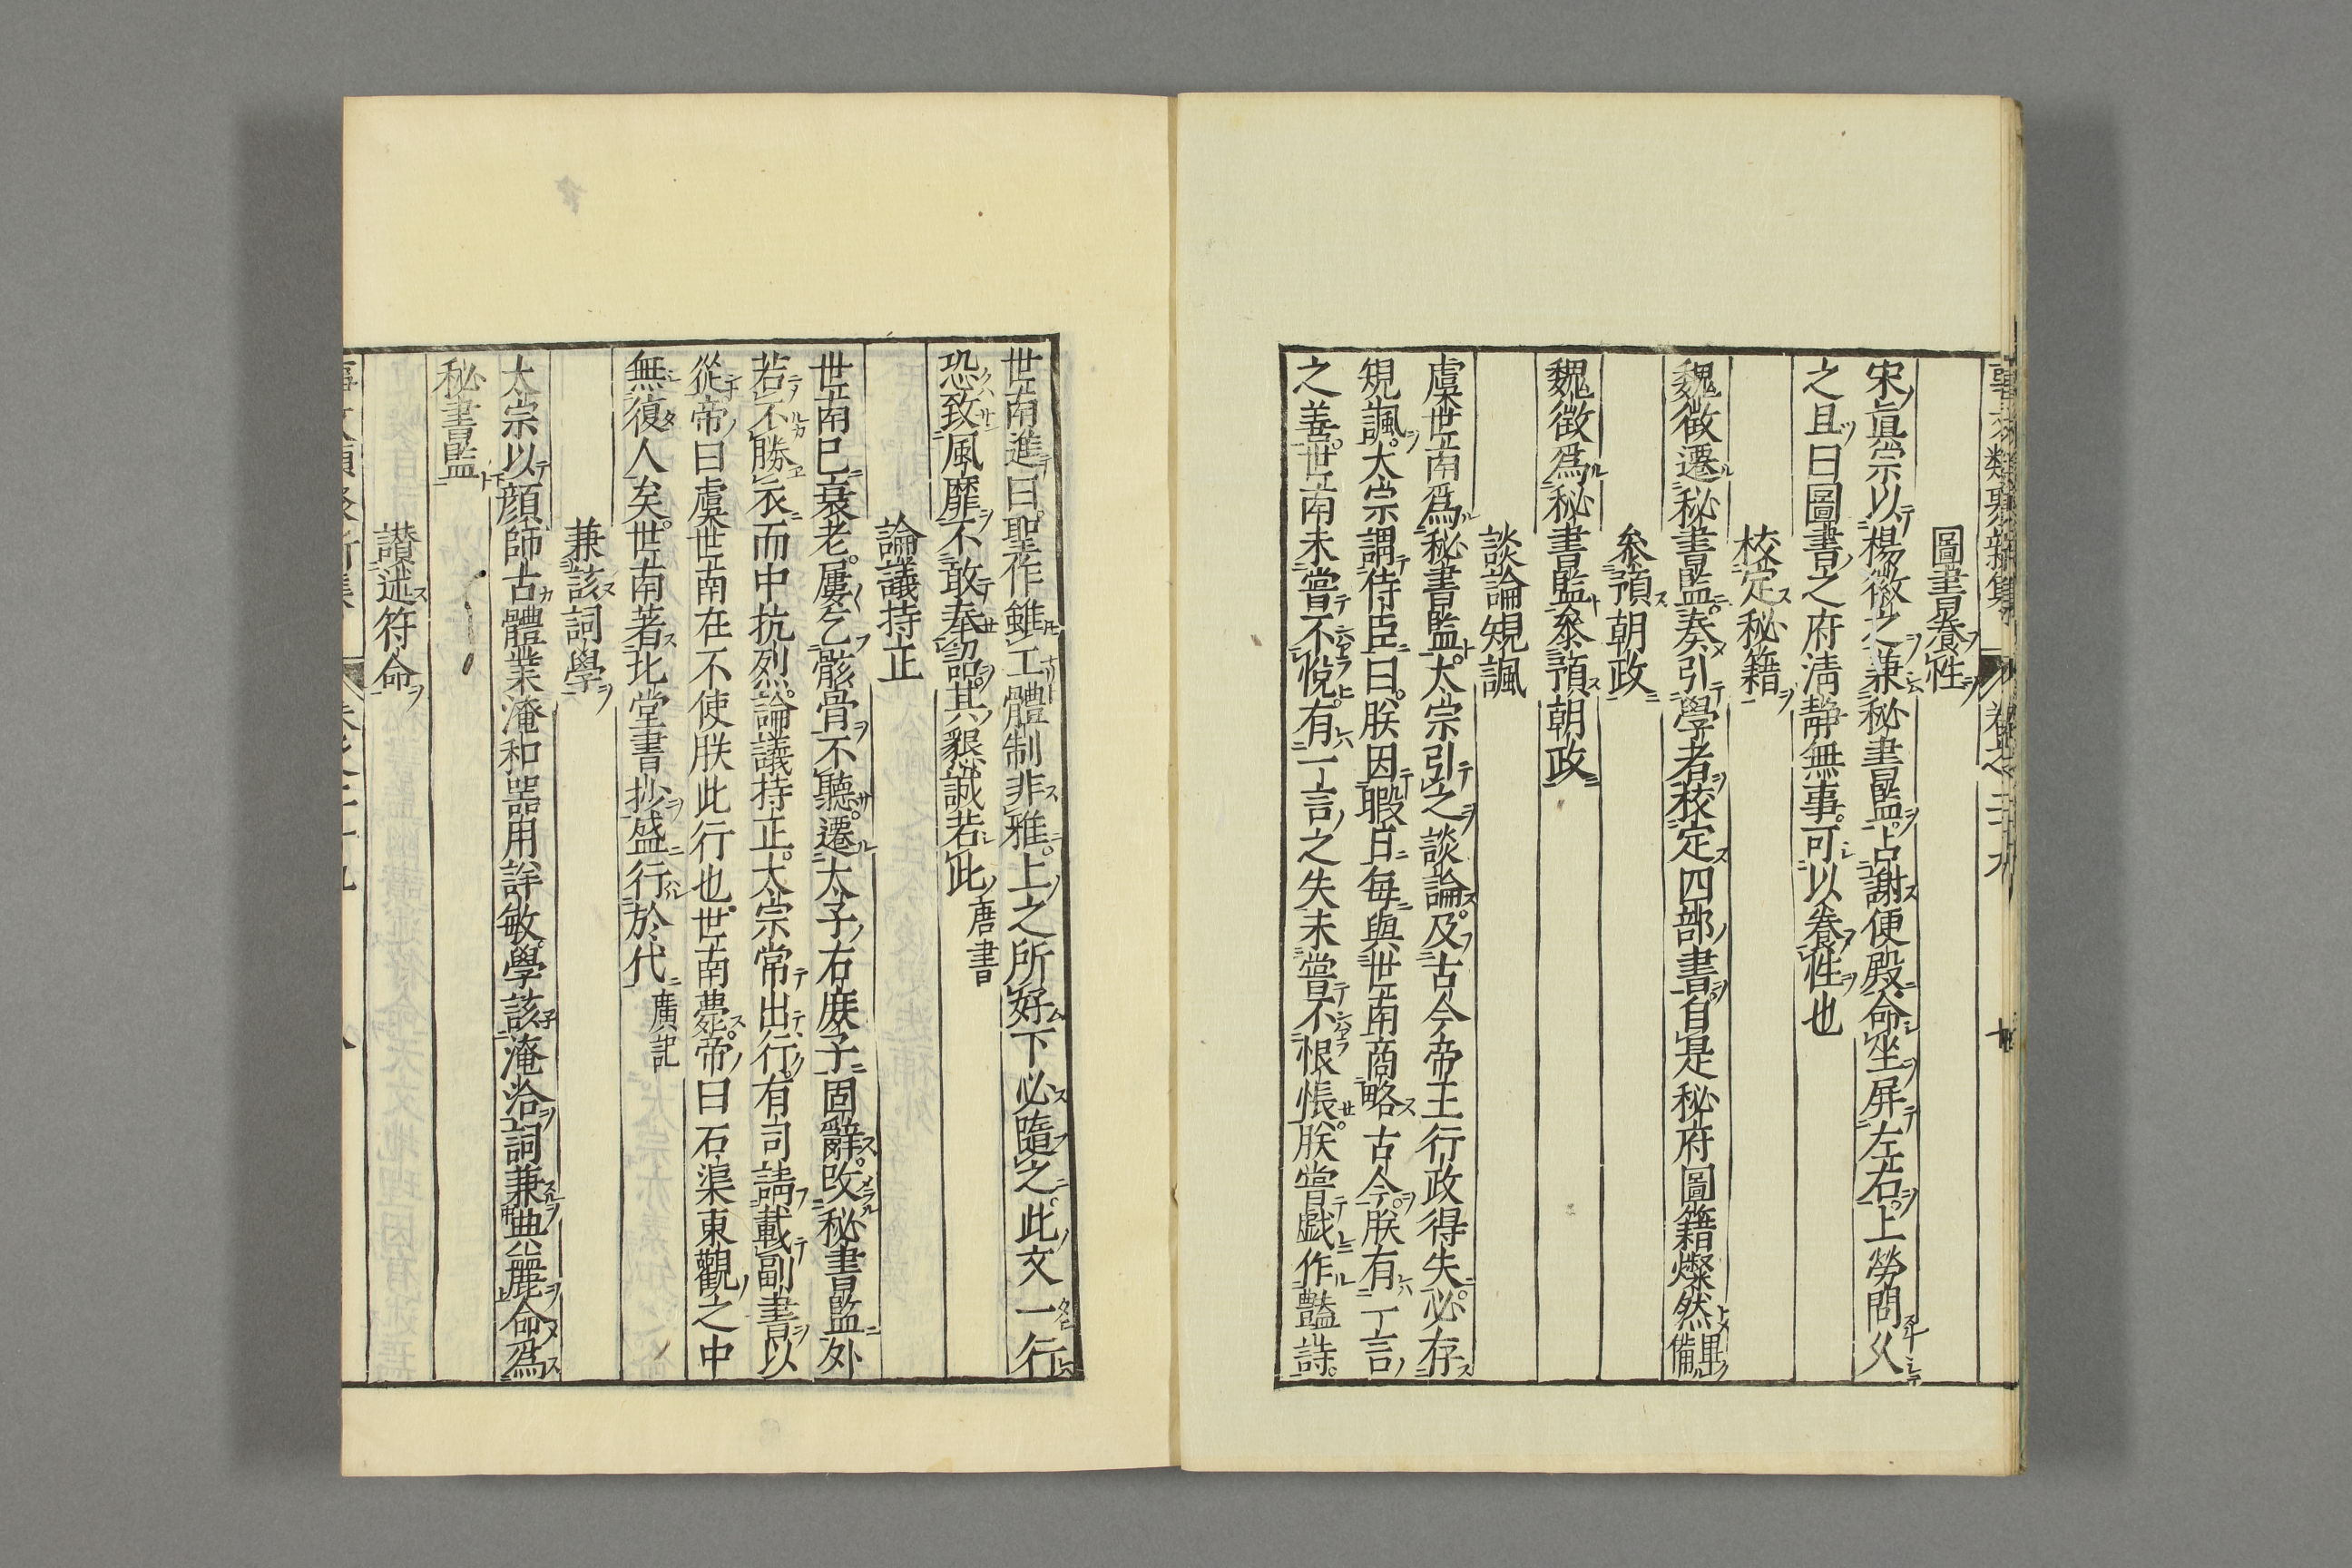 圖書養性
宋眞宗以楊徽之兼秘書監占謝便殿命坐屏左右上勞問久
之且曰圖書之府淸靜無事可以養性也
校定秘籍
魏徵遷秘書監奏引學者校定四部書自是秘府圖籍燦然畢備
叅預朝政
魏徵爲秘書監叅預朝政
談論規諷
虞世南爲秘書監太宗引之談論及古今帝王行政得失必存
規諷太宗謂侍臣曰朕因暇日每與世南商略古今朕有一言
之善世南未嘗不悅有一言之失未嘗不悵恨朕嘗戯作豔詩
世南進曰聖作雖工體制非雅上之所好下必隨之此文一行
恐致風靡不敢奉詔其懇誠若此唐書
論議持正
世南已衰老屢乞骸骨不聽遷太子右庶子固辭改秘書監外
若不勝衣而中抗烈論議持正太宗常出行有司請載副書以
從帝曰虞世南在不使朕此行也世南薨帝曰石渠東觀之中
無復人矣世南著北堂書抄盛行於代廣記
兼該詞學
太宗以顔師古體業淹和器用詳敏學該淹洽詞兼典麗命爲
秘書監
讃述符命